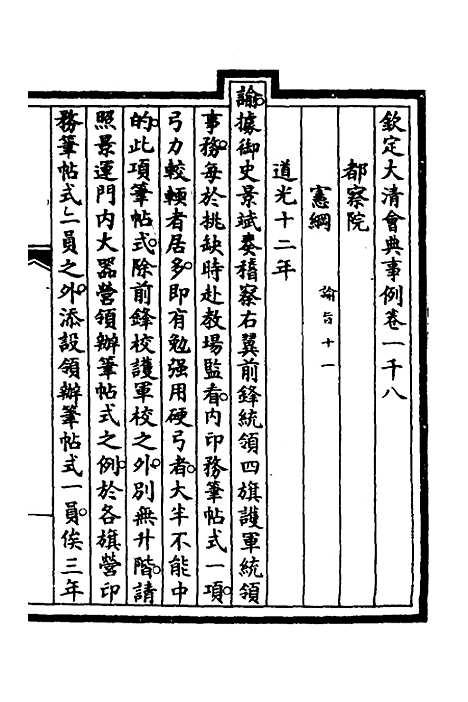 欽定大清會典事例卷一千八
都察院
憲綱 諭旨十一
道光十二年
諭。據御史景斌奏稽察右翼前鋒統領四旗護軍統領
事務。每於挑缺時赴教場監看。內印務筆帖式一項。
弓力較輭者居多。即有勉强用硬弓者。大半不能中
的。此項筆帖式。除前鋒校護軍校之外。別無升階。請
照景運門內大器營領辦筆帖式之例。於各旗營印
務筆帖式二員之外。添設領辦筆帖式一員。俟三年